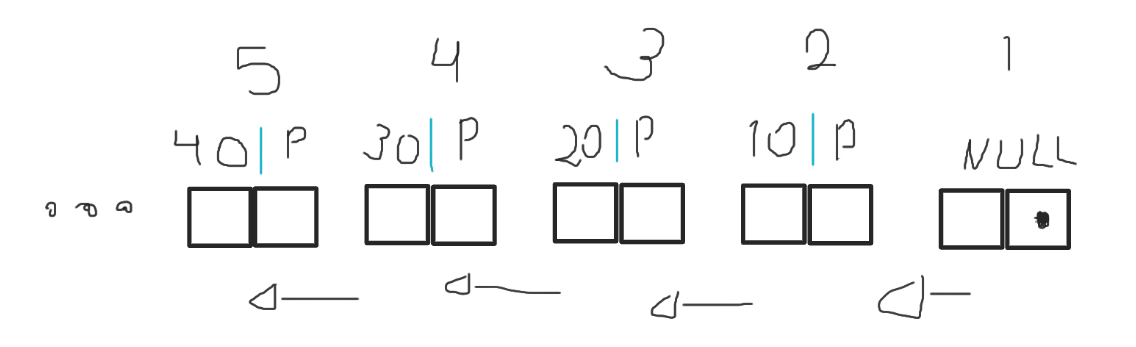 5 4 3 2 1
40|P 30|P 20|P 10|P NULL